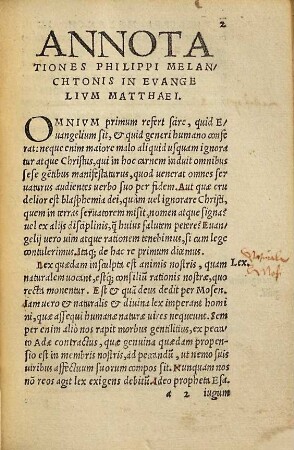 2
ANNOTA
TIONES PHILIPPI MELAN/
CHTONIS IN EVANGE
LIVM MATTHAEI.
OMNIVM primum refert scire, quid E/
uangelium sit, & quid generi humano confe
rat: neque enim maiore malo aliquid usquam ignora
tur atque Christus, qui in hoc carnem induit omnibus
sese gentibus manifestaturus, quod uenerat omnes ser
uaturus audientes uerbo suo per fidem. Aut quæ cru
delior est blasphemia dei, quàm uel ignorare Christū,
quem in terras seruatorem misit, nomen atque signaculū
uel ex alijs disciplinis, que huius salutem petere? Euan
gelij uero uim atque rationem tenebimus, si cum lege
contulerimus. Itaque de hac re primum dicemus.
Lex quædam insculpta est animis nostris, quam
naturalem uocant, estque consilium rationis nostræ, quo
recti monentur. Est & quā deus dedit per Mosen.
Iam uero & naturalis & diuina lex imperant homi
ni, quæ assequi humanæ naturæ uires nequeunt. Sem
per enim alio nos rapit morbus gentilitius, ex pecca
to Adæ contractus, quæ genuina quædam propen/
sio est in membris nostris, ad peccandū, ut nemo suis
uiribus affectuum suorum compos sit. Nunquam nos
non reos agit lex exigens debitū. Ideo propheta Esa.
Lex.
a 2 iugum